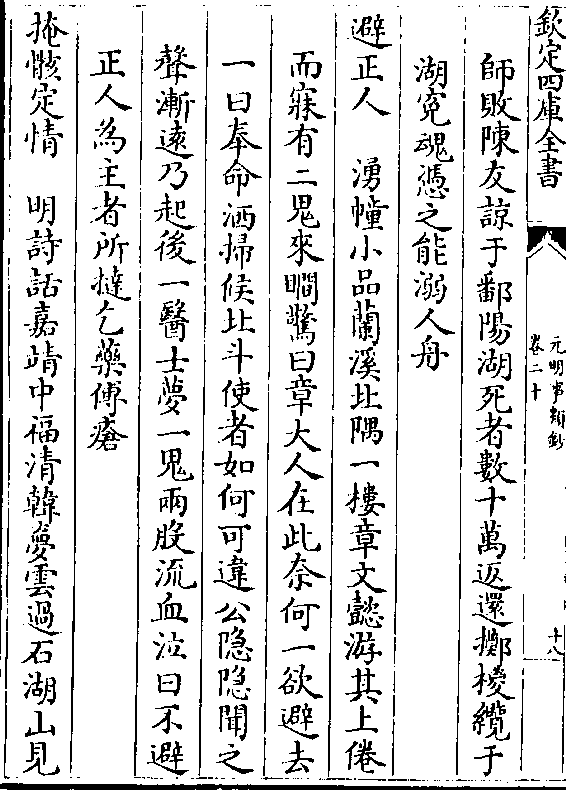 欽定四庫全書
元明事類鈔
卷二十
十八
師敗陳友諒于鄱陽湖死者數十萬返還擲椶纜于
湖寃魂憑之能溺人舟
避正人　湧幢小品蘭溪北隅一樓章文懿游其上倦
而寐有二鬼來瞷驚曰章大人在此奈何一欲避去
一曰奉命洒掃候北斗使者如何可違公隐隐聞之
聲漸逺乃起後一醫士夢一鬼兩股流血泣曰不避
正人為主者所撻乞藥傅瘡
掩骸定情　明詩話嘉靖中福清韓夢雲過石湖山見